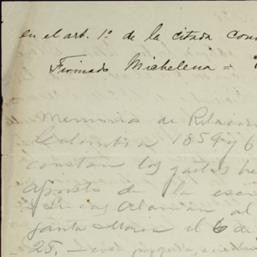 en el art. 1º de la citada con
Firmado Michelena =
Memorias de Relacio
Colombia 1859 y 6
constan los gastos he
aposto de la es
Lucas Alaman al
Santa Maria el 6 de
25. —